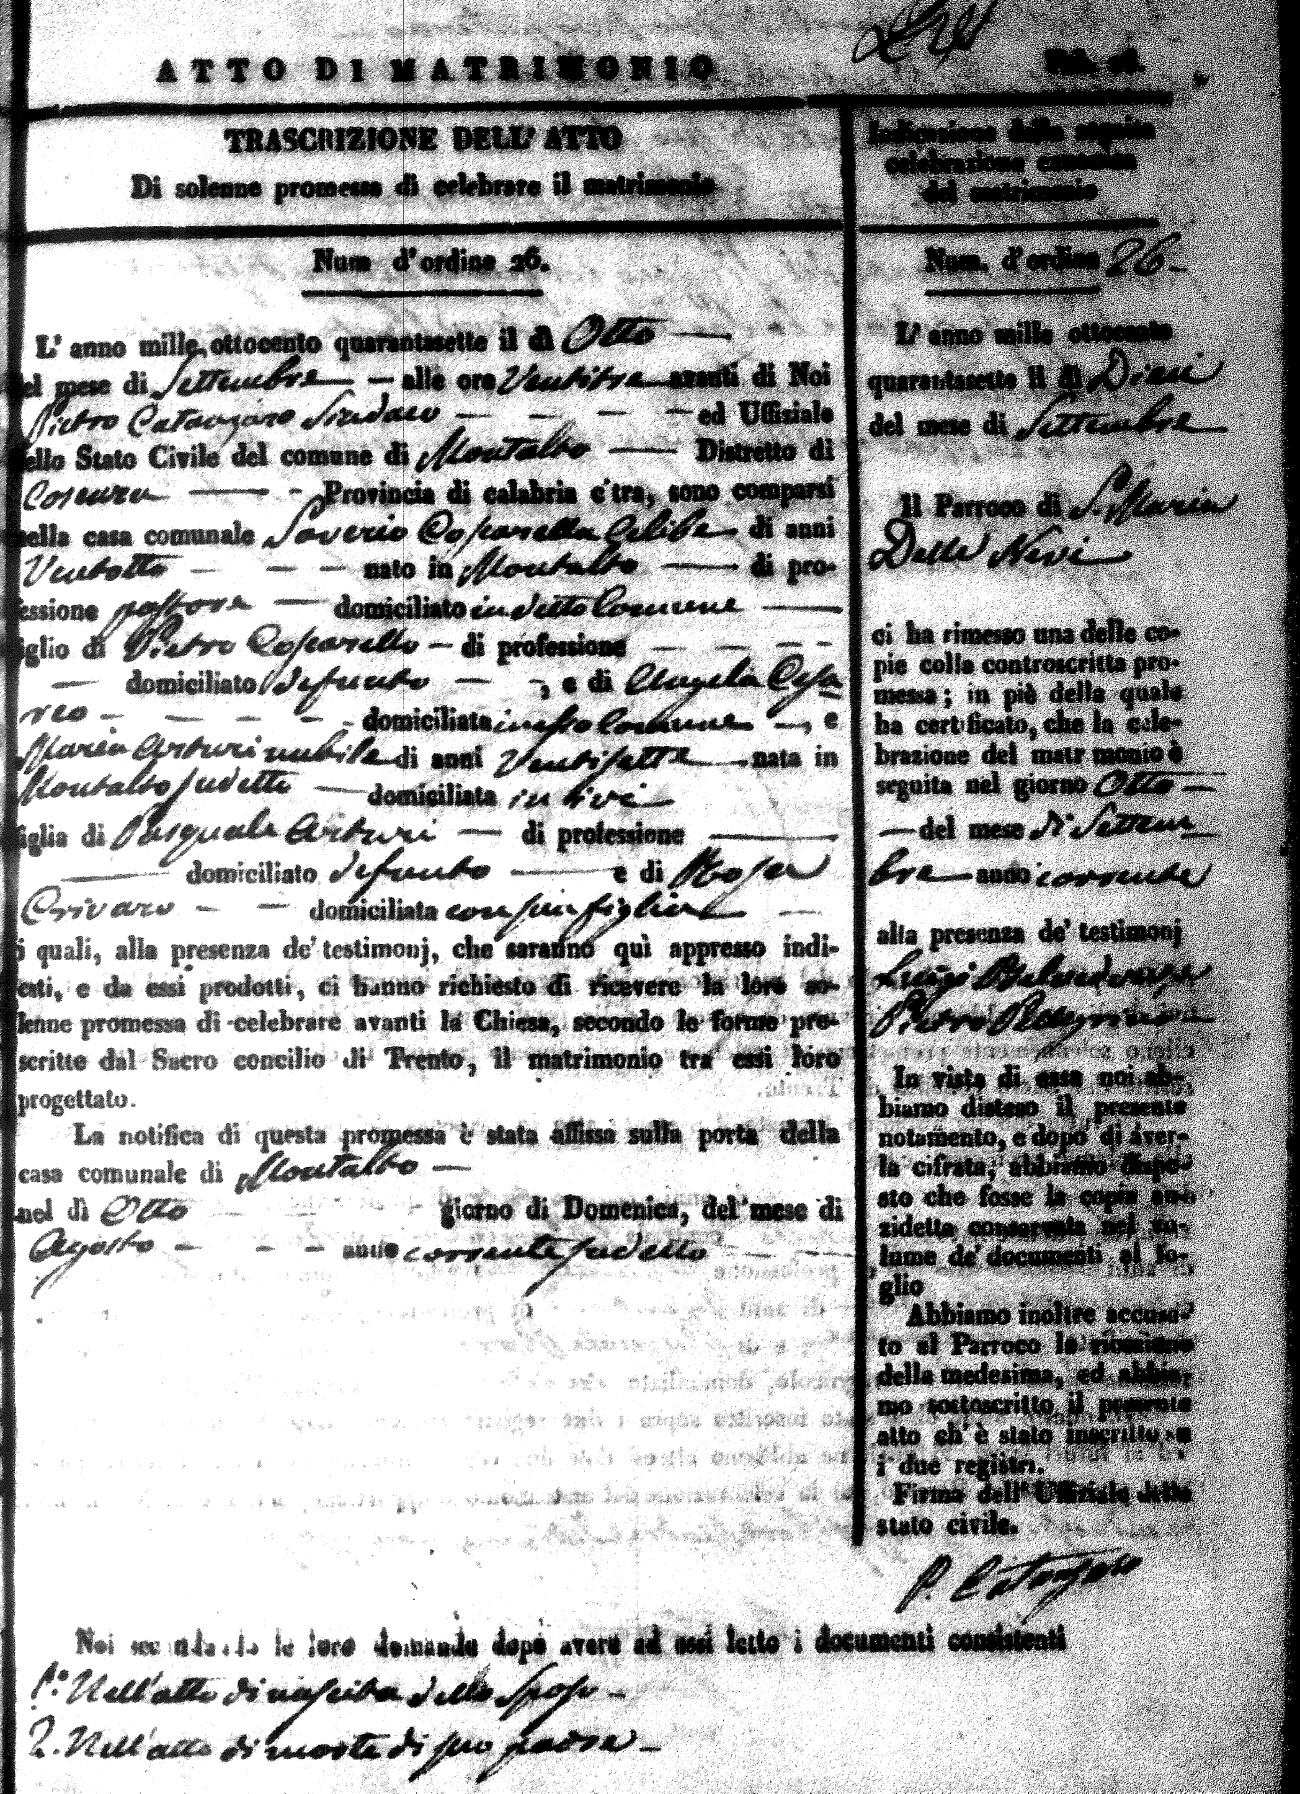 ATTO DI MATRIMONIO
TRASCRIZIONE DELL' ATTO
Di solenne promessa di celebrare il matrimonio
Num d'ordine 26.
L' anno mille ottocento quarantasette il dì Otto
el mese di Settembre alle ore Ventitre avanti di Noi
Pietro Catanzaro Sindaco ed Uffiziale
ello Stato Civile del comune di Montalto Distretto di
Cosenza Provincia di calabria c'tra, sono comparsi
nella casa comunale Saverio Celibe di anni
Ventotto nato in Montalto di pro-
fessione pastore domiciliato in detto Comune
figlio di Pietro di professione
domiciliato defunto , e di Angela Cesa
reo domiciliata Comune , e
Maria Arturi nubile di anni Ventisette nata in
Montalto sudetto domiciliata in ivi
figlia di Pasquale Arturi di professione
domiciliato defunto e di Rosa
Crivaro domiciliata con sua figlia
i quali, alla presenza de' testimonj, che saranno quì appresso indi-
cati, e da essi prodotti, ci hanno richiesto di ricevere la loro so-
lenne promessa di celebrare avanti la Chiesa, secondo le forme pre-
scritte dal Sacro concilio di Trento, il matrimonio tra essi loro
progettato.
La notifica di questa promessa è stata affissa sulla porta della
casa comunale di Montalto
nel dì Otto giorno di Domenica, del mese di
Agosto anno corrente sudetto
Indicazione della seguita
celebrazione canonica
del matrimonio
Num. d'ordine 26
L' anno mille ottocento
quarantasette il dì Dieci
del mese di Settembre
Il Parroco di S. Maria
Delle Nevi
ci ha rimesso una delle co-
pie colla controscritta pro-
messa; in piè della quale
ha certificato, che la cele-
brazione del matrimonio è
seguita nel giorno Otto
del mese di Settem
bre anno corrente
alla presenza de' testimonj
Luigi
Pietro
In vista di essa noi ab-
biamo disteso il presente
notamento, e dopo di aver-
la cifrata, abbiamo dispo-
sto che fosse la copia an-
zidetta conservata nel vo-
lume de' documenti al fo-
glio
Abbiamo inoltre accusa-
to al Parroco la ricezione
della medesima, ed abbia-
mo sottoscritto il presente
atto ch' è stato inscritto su
i due registri.
Firma dell' Uffiziale dello
stato civile.
P. Catanzaro
Noi secondando le loro domande dopo avere ad essi letto i documenti consistenti
1.° Nell'atto di nascita dello Sposo
2. Nell'atto di morte di suo padre